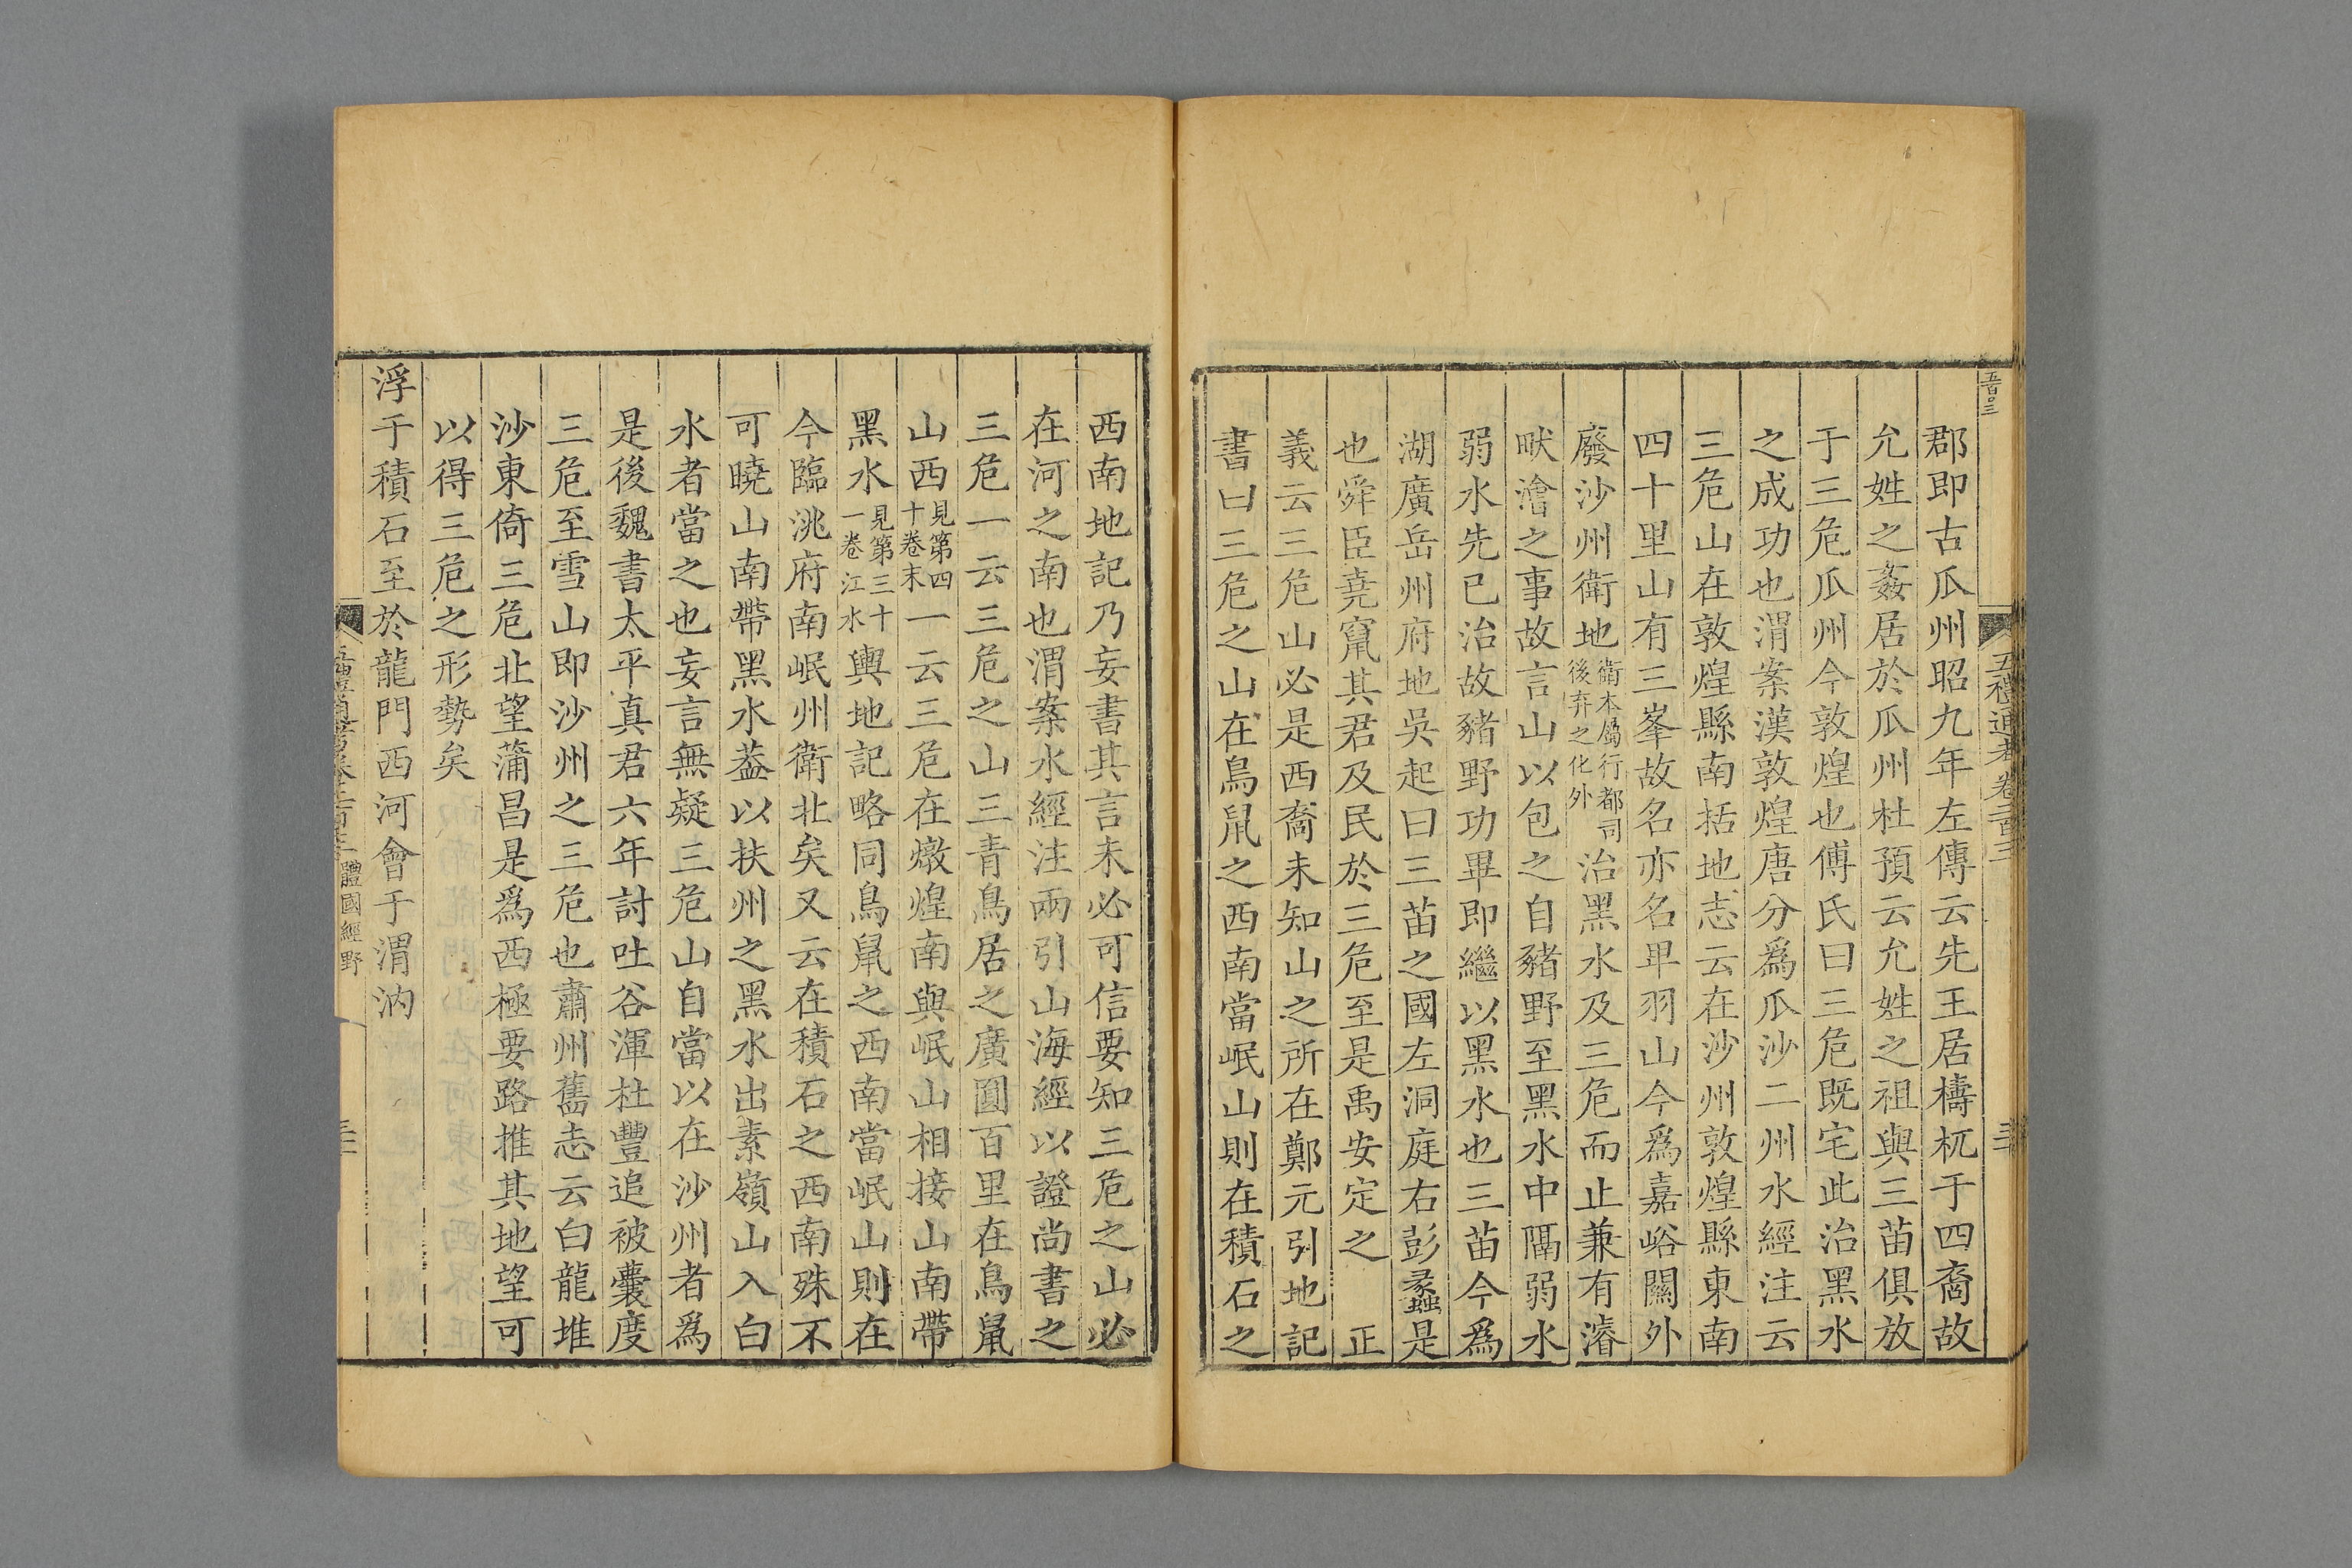 五百〇三
五禮通考卷二百三
郡即古瓜州昭九年左傳云先王居檮杌于四裔故
允姓之姦居於瓜州杜預云允姓之祖與三苗俱放
于三危瓜州今敦煌也傅氏曰三危既宅此治黑水
之成功也渭案漢敦煌唐分爲瓜沙二州水經注云
三危山在敦煌縣南括地志云在沙州敦煌縣東南
四十里山有三峯故名亦名卑羽山今爲嘉峪關外
廢沙州衛地衛本屬行都司後弃之化外治黑水及三危而止兼有濬
畎澮之事故言山以包之自豬野至黑水中隔弱水
弱水先已治故豬野功畢即繼以黑水也三苗今爲
湖廣岳州府地吳起曰三苗之國左洞庭右彭蠡是
也舜臣堯竄其君及民於三危至是禹安定之　正
義云三危山必是西裔未知山之所在鄭元引地記
書曰三危之山在鳥鼠之西南當岷山則在積石之
西南地記乃妄書其言未必可信要知三危之山必
在河之南也渭案水經注兩引山海經以證尚書之
三危一云三危之山三青鳥居之廣圓百里在鳥鼠
山西見第四十卷末一云三危在燉煌南與岷山相接山南帶
黑水見第三十一卷江水輿地記略同鳥鼠之西南當岷山則在
今臨洮府南岷州衛北矣又云在積石之西南殊不
可曉山南帶黑水葢以扶州之黑水出素嶺山入白
水者當之也妄言無疑三危山自當以在沙州者爲
是後魏書太平真君六年討吐谷渾杜豐追被囊度
三危至雪山即沙州之三危也肅州舊志云白龍堆
沙東倚三危北望蒲昌是爲西極要路推其地望可
以得三危之形勢矣
浮于積石至於龍門西河會于渭汭
體國經野